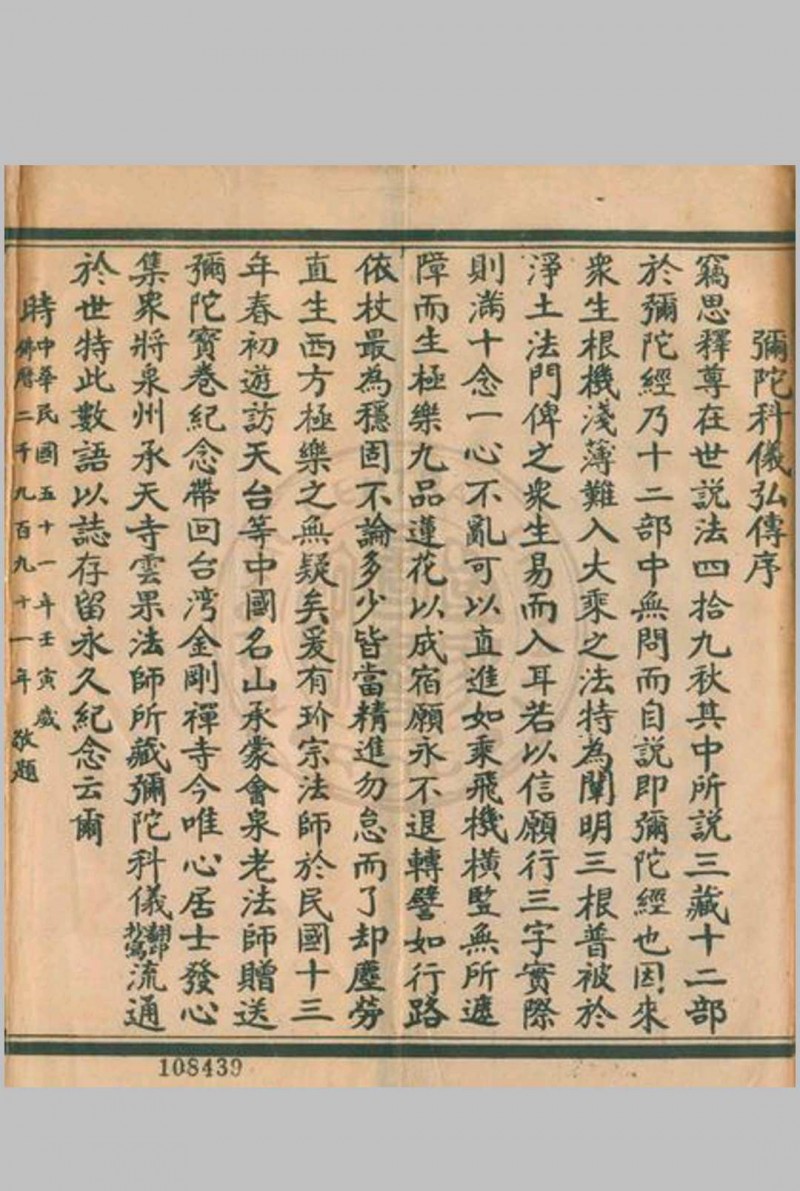 彌陀科儀弘傳序
竊思釋尊在世說法四拾九秋其中所說三藏十二部
於彌陀經乃十二部中無問而自說即彌陀經也因來
眾生根機淺薄難入大乘之法特為闡明三根普被於
淨土法門俾之眾生易而入耳若以信願行三字實際
則滿十念一心不亂可以直進如乘飛機橫豎無所遮
障而生極樂九品蓮花以成宿願永不退轉譬如行路
依杖最為穩固不論多少皆當精進勿怠而了却塵勞
直生西方極樂之無疑矣爰有玠宗法師於民國十三
年春初遊訪天台等中國名山承蒙會泉老法師贈送
彌陀寶卷紀念帶回台灣金剛禪寺今唯心居士發心
集眾將泉州承天寺雲果法師所藏彌陀科儀翻印抄寫流通
於世特此數語以誌存留永久紀念云爾
時中華民國五十一年壬寅歲
佛曆二千九百九十一年 敬題
108439